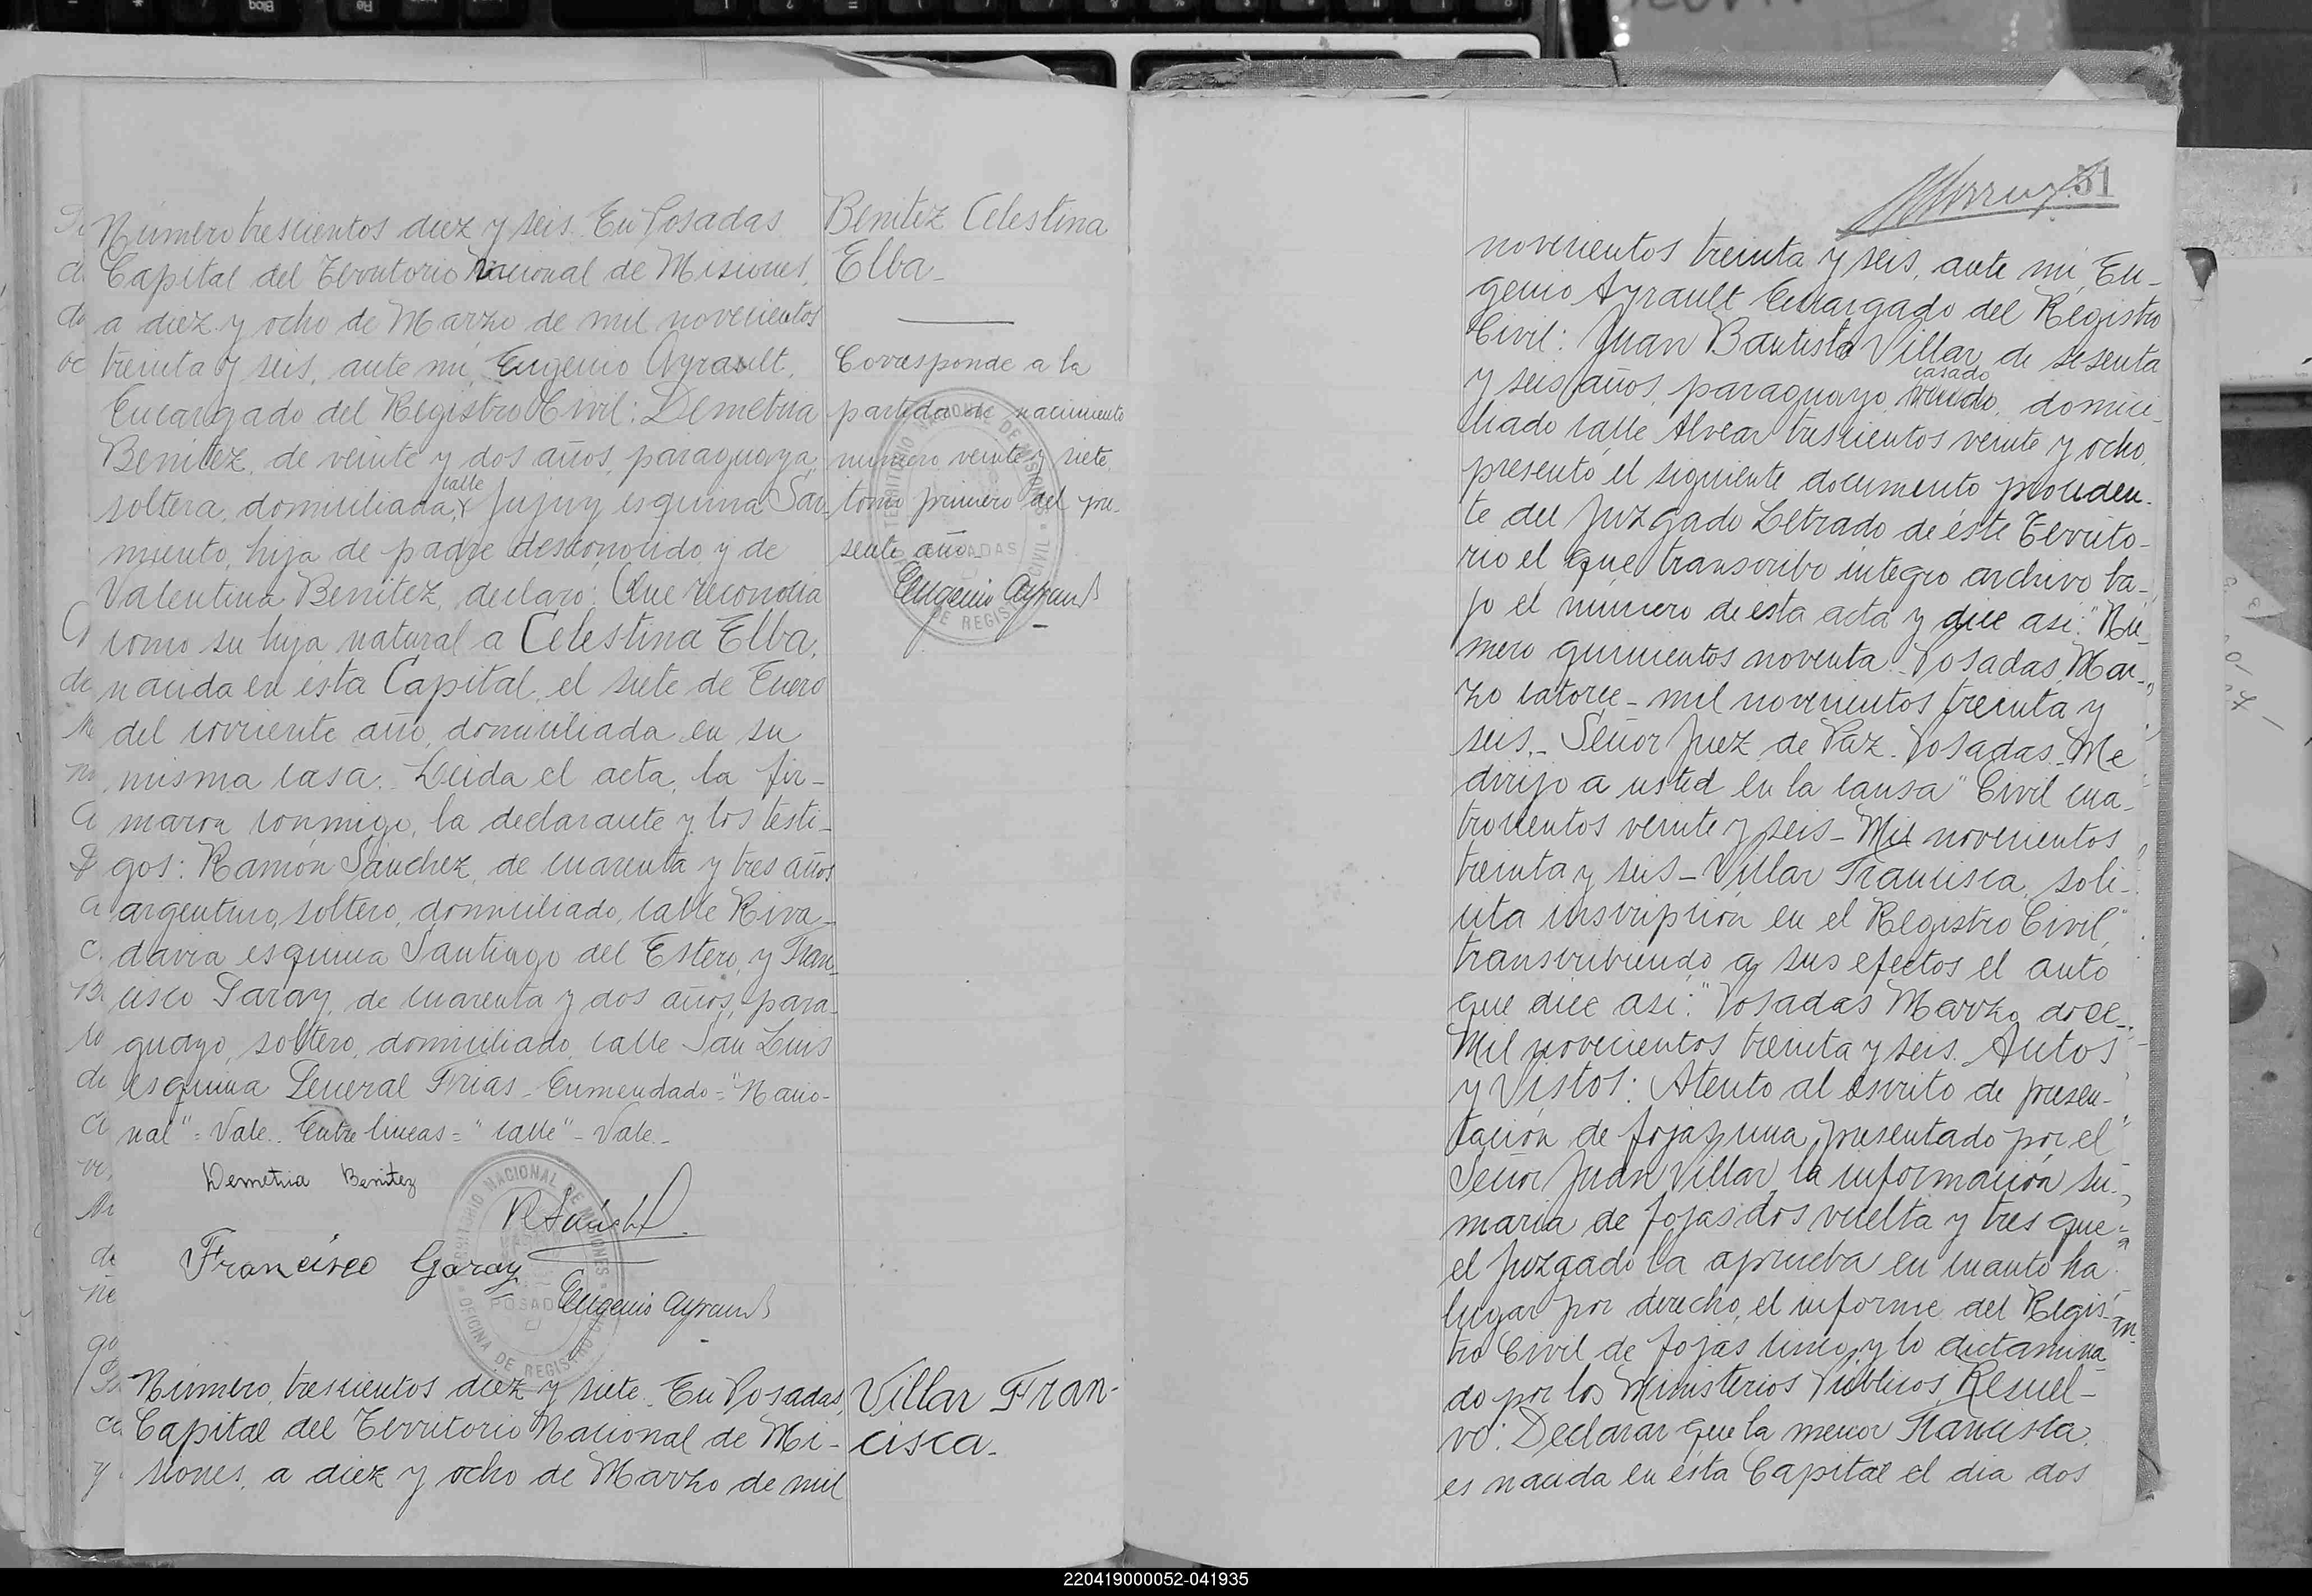 Número trescientos diez y seis. En Posadas
Capital del Territorio Nacional de Misiones,
a diez y ocho de Marzo de mil novecientos
treinta y seis, ante mi, Eugenio Ayrault,
Encargado del Registro Civil: Demetria
Benitez, de veinte y dos años, paraguaya,
soltera, domiciliada, calle Jujuy esquina Sar-
miento, hija de padre desconocido y de
Valentina Benitez, declaró: Que reconocía
como su hija natural a Celestina Elba,
nacida en esta Capital, el siete de Enero
del corriente año, domiciliada en su
misma casa. Leida el acta, la fir-
maron conmigo, la declarante y los testi-
gos: Ramón Sánchez, de cuarenta y tres años
argentino, soltero, domiciliado, calle Riva-
davia esquina Santiago del Estero, y Fran-
cisco Garay, de cuarenta y dos años, para-
guayo, soltero, domiciliado, calle San Luis
esquina General Frias - Enmendado = "Nacio-
nal" = Vale. Entre lineas = "calle" - Vale.-
Demetria Benitez
Francisco Garay
Eugenio Ayrault
TERRITORIO NACIONAL DE MISIONES
POSADAS
OFICINA DE REGISTRO CIVIL
Benitez Celestina
Elba-
Corresponde a la
partida de nacimiento
número veinte y siete
tomo primero del pre-
sente año
Eugenio Ayrault
TERRITORIO NACIONAL DE MISIONES
POSADAS
DE REGISTRO CIVIL
Número, trescientos diez y siete. En Posadas,
Capital del Territorio Nacional de Mi-
siones, a diez y ocho de Marzo de mil
Villar Fran-
cisca-
51
novecientos treinta y seis, ante mi, Eu-
genio Ayrault Encargado del Registro
Civil: Juan Bautista Villar, de sesenta
y seis años, paraguayo, casado, domici-
liado calle Alvear trescientos veinte y ocho,
presentó el siguiente documento proceden-
te del Juzgado Letrado de éste Territo-
rio el que transcribo íntegro archivo ba-
jo el número de esta acta y dice asi: "Nú-
mero quinientos noventa. Posadas Mar-
zo catorce - mil novecientos treinta y
seis.- Señor Juez de Paz. Posadas. Me
dirijo a usted en la causa "Civil cua-
trocientos veinte y seis - Mil novecientos
treinta y seis - Villar Francisca, soli-
cita inscripción en el Registro Civil,"
transcribiendo a sus efectos el auto
que dice asi: "Posadas Marzo doce-
Mil novecientos treinta y seis. Autos
y Vistos: Atento al escrito de presen-
tación de fojas una, presentado por el
Señor Juan Villar, la información su-
maria de fojas dos vuelta y tres que
el Juzgado la aprueba en cuanto ha
lugar por derecho, el informe del Regis-
tro Civil de fojas cinco, y lo dictamina-
do por los Ministerios Públicos, Resuel-
vo: Declarar que la menor Francisca
es nacida en ésta Capital el dia dos
220419000052-041935